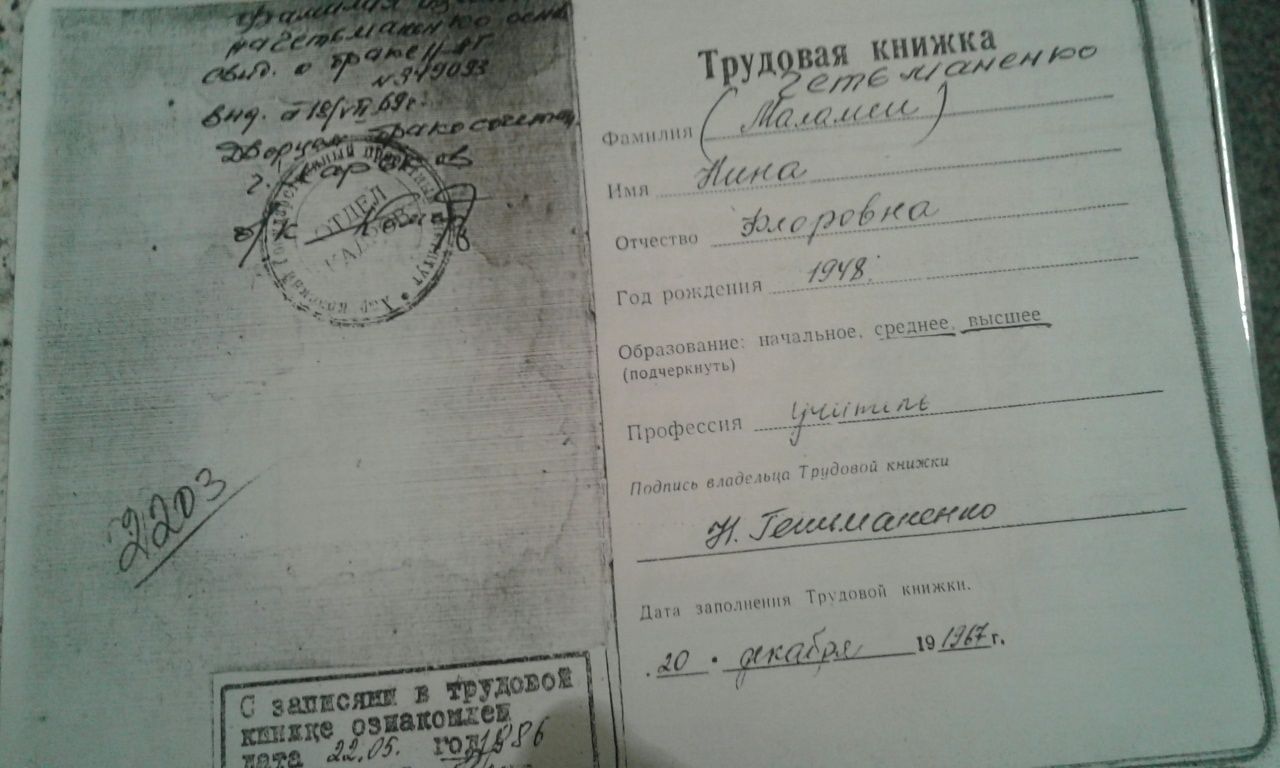 на Гетьманенко осно
свид. о браке II-ВГ
№ 349093
выд. 18/VII 69г.
Дворцом бракосочета
г. Харьков
ОТДЕЛ
КАДРОВ
2203
С записями в трудовой
книжке ознакомлен
дата 22.05. год 1986
Трудовая книжка
Гетьманенко
Фамилия (Маламен)
Имя Нина
Отчество Флоровна
Год рождения 1948.
Образование: начальное, среднее, высшее
(подчеркнуть)
Профессия учитель
Подпись владельца Трудовой книжки
Н. Гетьманенко
Дата заполнения Трудовой книжки.
20 декабря 19 1967 г.